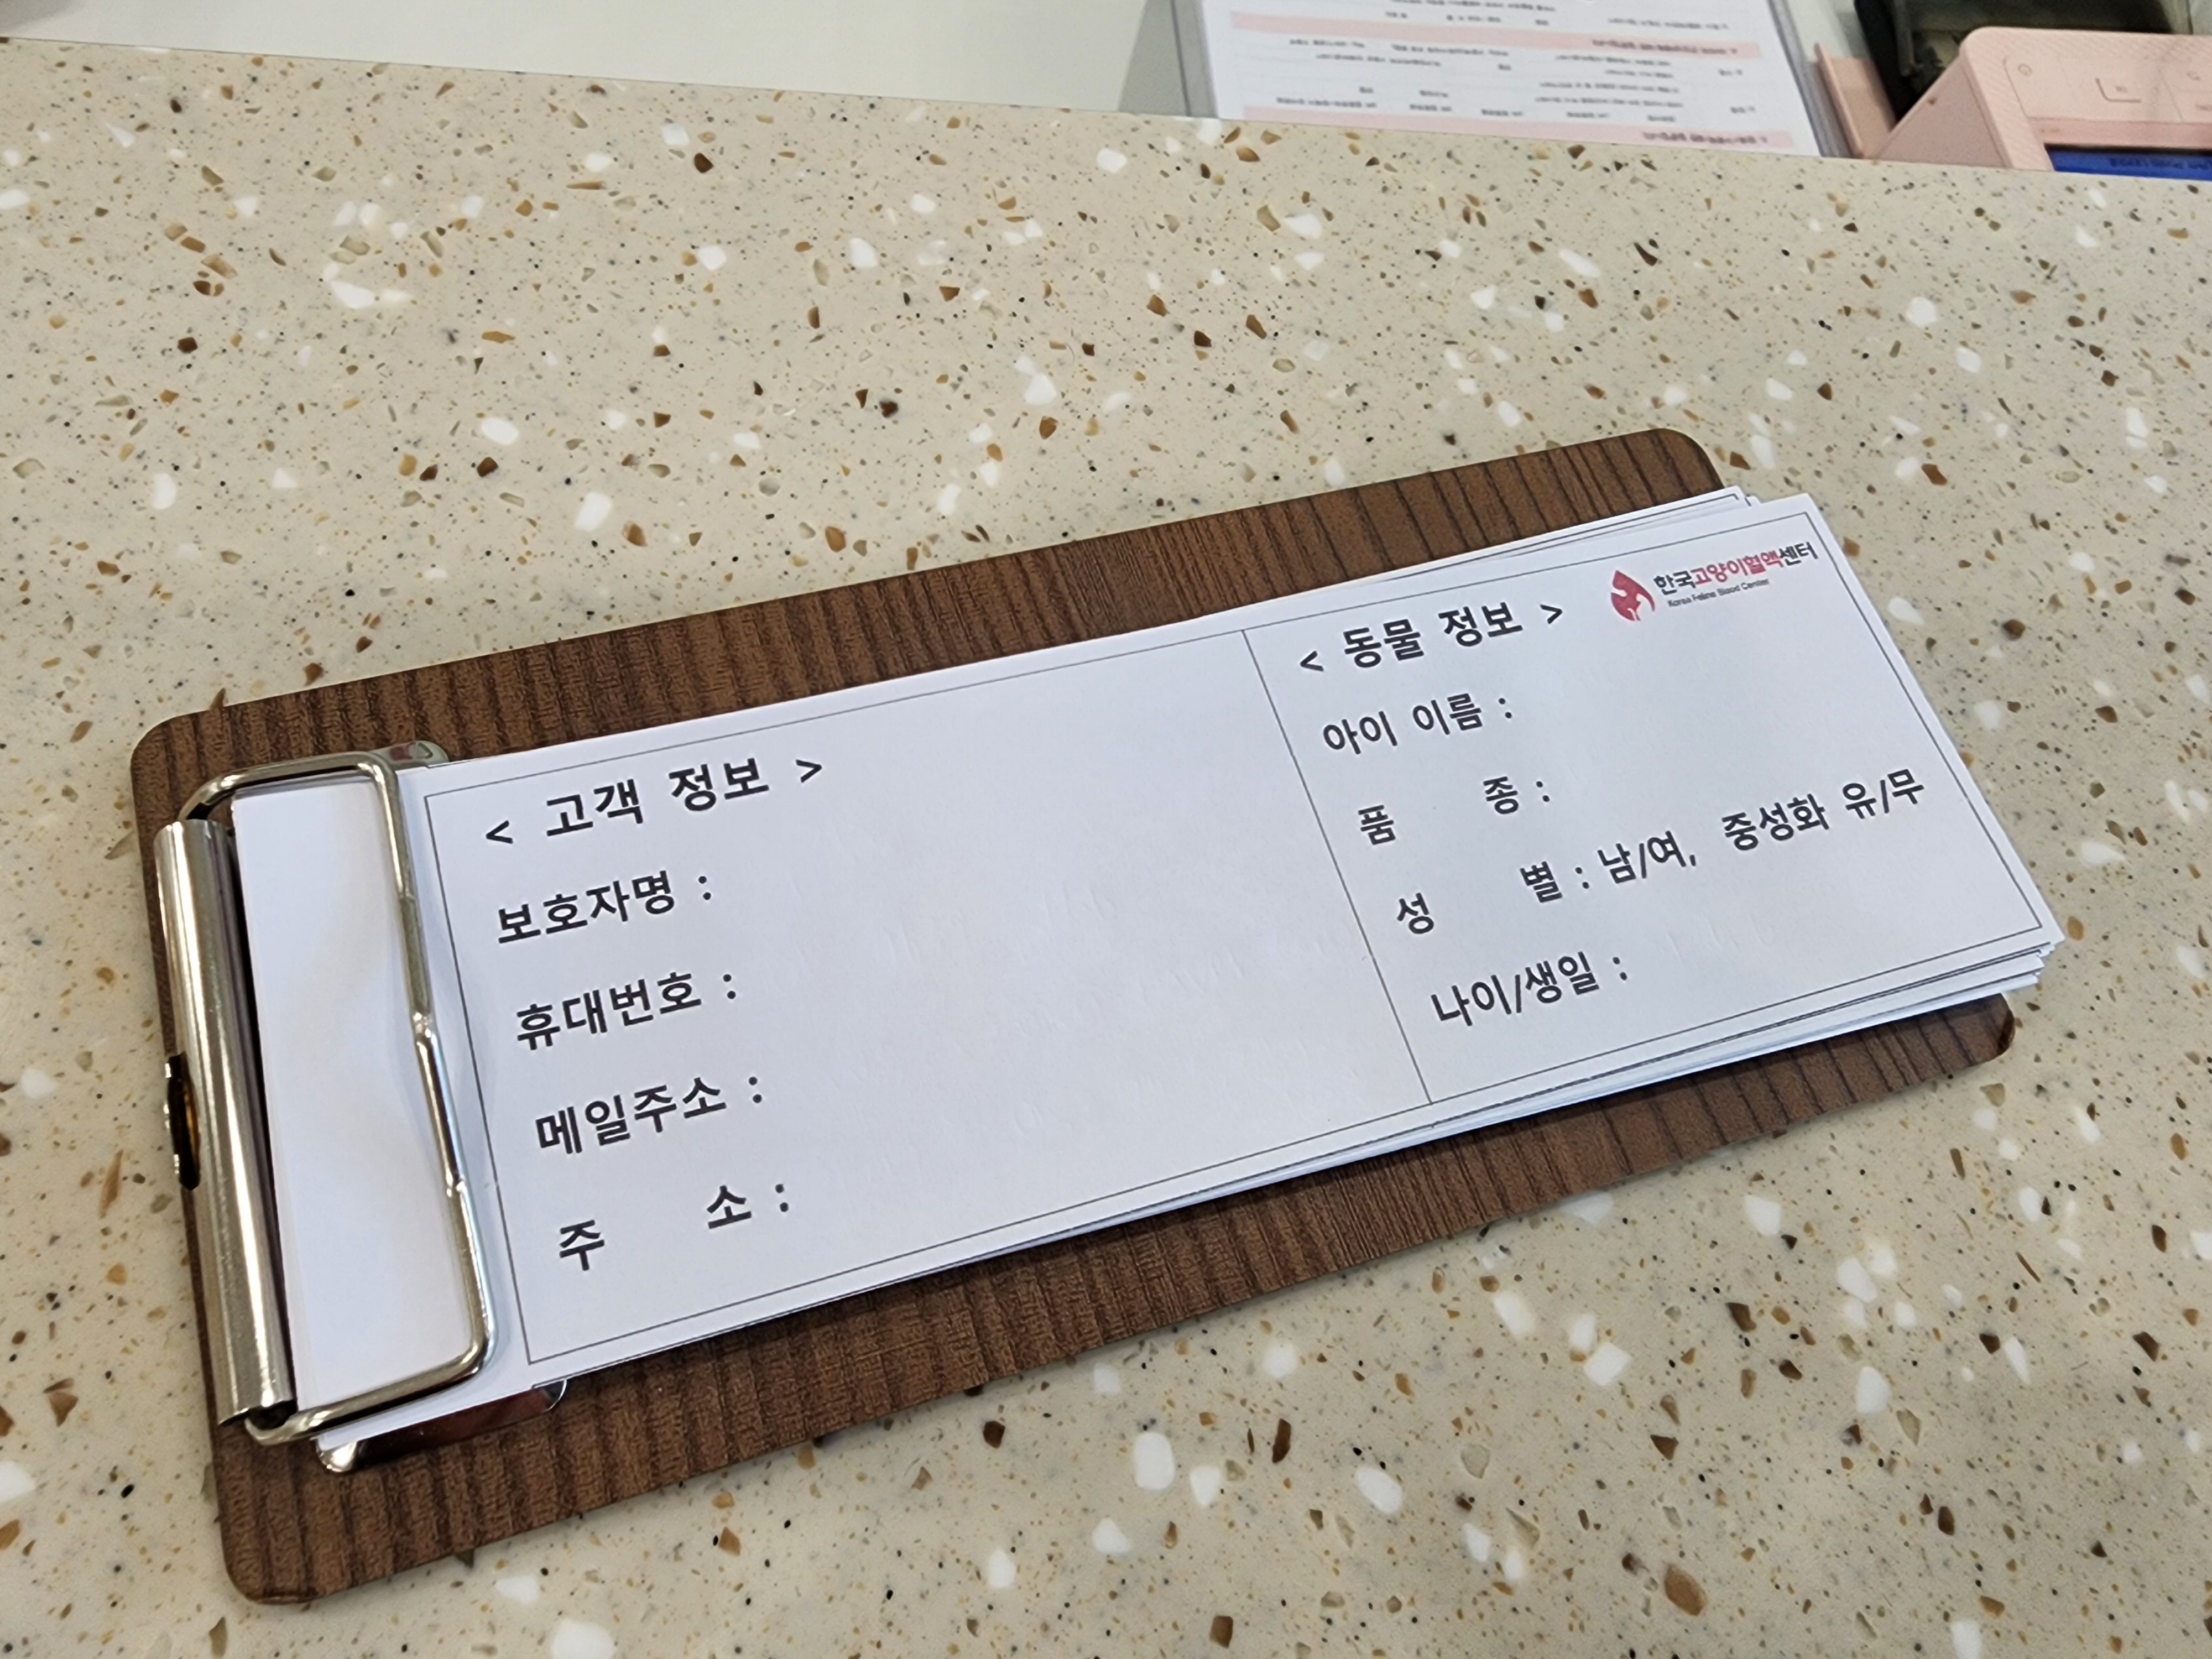 < 고객 정보 >
보호자명 :
휴대번호 :
메일주소 :
주 소 :
한국고양이혈액센터
Korea Feline Blood Center
< 동물 정보 >
아이 이름 :
품 종 :
성 별 : 남/여, 중성화 유/무
나이/생일 :